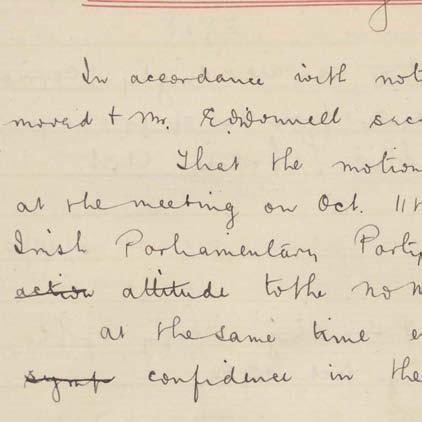 In accordance with not
moved & Mr. E. O'Donnell sec
That the motion
at the meeting on Oct. 11t
Irish Parliamentary Party
action attitude to the nom
at the same time e
symp confidence in the